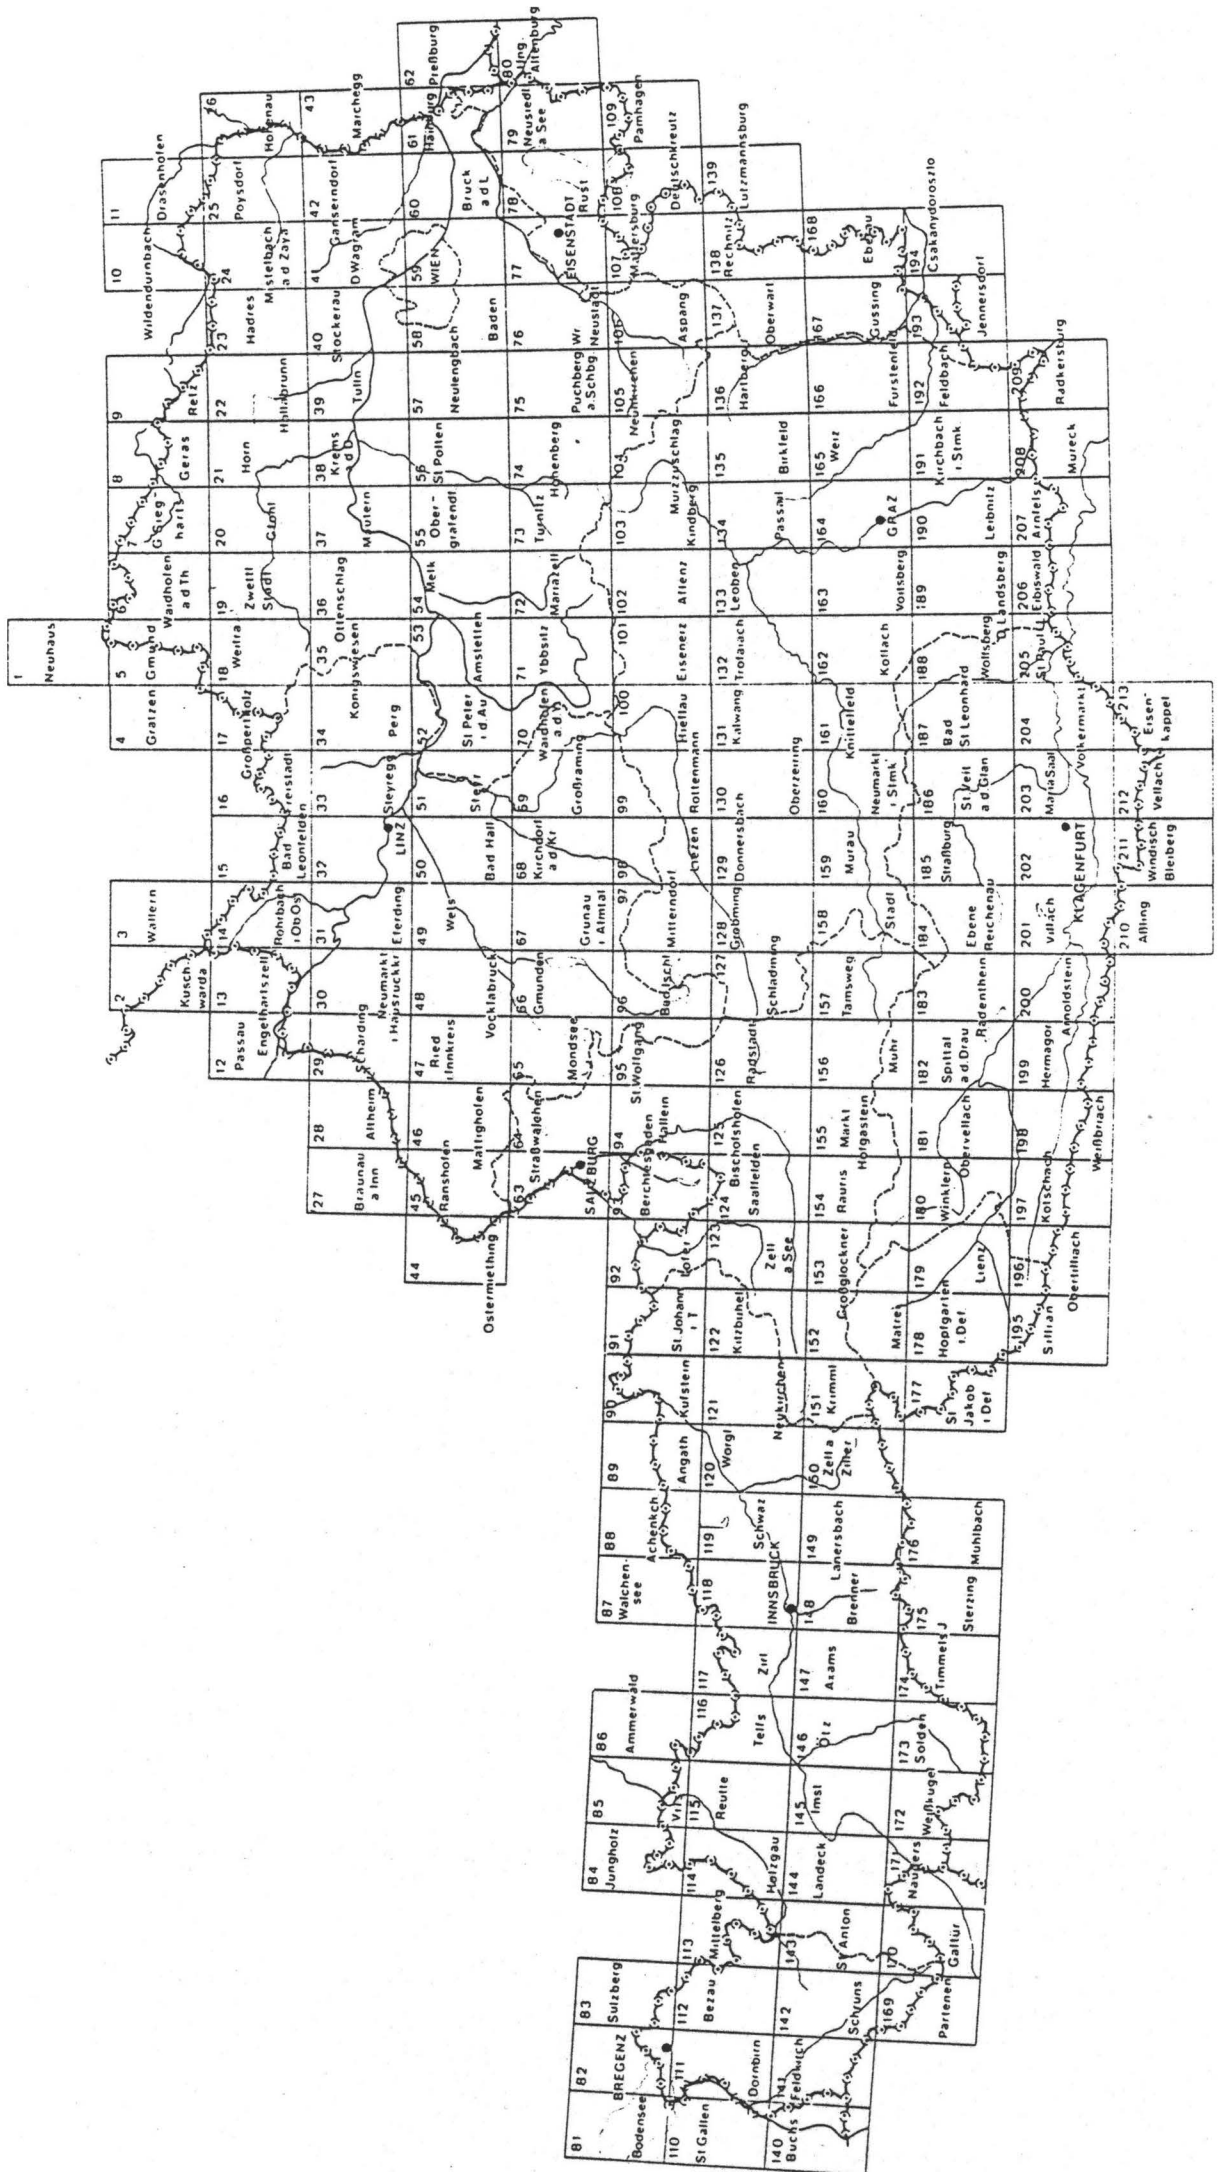 1
Neuhaus
2
Kusch-
warda
3
Wallern
4
Gratzen
5
Gmünd
6
Waidhofen
a d Th
7
G Sieg-
harts
8
Geras
9
Retz
10
Wildendürnbach
11
Drasenhofen
12
Passau
13
Engelhartszell
14
Rohrbach
i Ob Ös
15
Bad
Leonfelden
16
Freistadt
17
Großpertholz
18
Weitra
19
Zwettl
Stadt
20
Gföhl
21
Horn
22
Hollabrunn
23
Hadres
24
Mistelbach
a d Zaya
25
Poysdorf
26
Hohenau
27
Braunau
a Inn
28
Altheim
29
Schärding
30
Neumarkt
i Hausruckkr
31
Eferding
37
LINZ
33
Steyregg
34
Perg
35
Königswiesen
36
Ottenschlag
37
Mautern
38
Krems
a d D
39
Tulln
40
Stockerau
41
D Wagram
42
Gänserndorf
43
Marchegg
44
Ostermiething
45
Ranshofen
46
Mattighofen
47
Ried
i Innkreis
48
Vöcklabruck
49
Wels
50
Bad Hall
51
Steyr
52
St Peter
i d. Au
53
Amstetten
54
Melk
55
Ober-
grafendf
56
St Pölten
57
Neulengbach
58
Baden
59
WIEN
60
Bruck
a d L
61
Hainburg
62
Preßburg
63
SALZBURG
64
Straßwalchen
65
Mondsee
66
Gmunden
67
Grünau
i Almtal
68
Kirchdorf
a d Kr
69
Großraming
70
Waidhofen
a d Y
71
Ybbsitz
72
Mariazell
73
Türnitz
74
Hohenberg
75
Puchberg
a. Schbg.
76
Wr
Neustadt
77
EISENSTADT
78
Rust
79
Neusiedl
a See
80
Ung
Altenburg
81
Bodensee
82
BREGENZ
83
Sulzberg
84
Jungholz
85
Vils
86
Ammerwald
87
Walchen-
see
88
Achenkch
89
Angath
90
Kufstein
91
St. Johann
i T
92
Lofer
93
Berchtesgaden
94
Hallein
95
St. Wolfgang
96
Bad Ischl
97
Mitterndorf
98
Liezen
99
Rottenmann
100
Hieflau
101
Eisenerz
102
Aflenz
103
Kindberg
104
Mürzzuschlag
105
Neunkirchen
106
Aspang
107
Mattersburg
108
Deutschkreutz
109
Pamhagen
110
St Gallen
111
Dornbirn
112
Bezau
113
Mittelberg
114
Holzgau
115
Reutte
116
Telfs
117
Zirl
118
INNSBRUCK
119
Schwaz
120
Wörgl
121
Neukirchen
122
Kitzbühel
123
Zell
a See
124
Saalfelden
125
Bischofshofen
126
Radstadt
127
Schladming
128
Gröbming
129
Donnersbach
130
Oberzeiring
131
Kalwang
132
Trofaiach
133
Leoben
134
Passail
135
Birkfeld
136
Hartberg
137
Oberwart
138
Rechnitz
139
Lutzmannsburg
140
Buchs
141
Feldkirch
142
Schruns
143
St Anton
144
Landeck
145
Imst
146
Ötz
147
Axams
148
Brenner
149
Lanersbach
150
Zell a
Ziller
151
Krimml
152
Matrei
153
Großglockner
154
Rauris
155
Markt
Hofgastein
156
Muhr
157
Tamsweg
158
Stadl
159
Murau
160
Neumarkt
i Stmk
161
Knittelfeld
162
Köflach
163
Voitsberg
164
GRAZ
165
Weiz
166
Fürstenfeld
167
Güssing
168
Eberau
169
Partenen
170
Galtür
171
Nauders
172
Weißkugel
173
Sölden
174
Timmels J
175
Sterzing
176
Mühlbach
177
St
Jakob
i Def
178
Hopfgarten
i. Def.
179
Lienz
180
Winklern
181
Obervellach
182
Spittal
a d. Drau
183
Radenthein
184
Ebene
Reichenau
185
Straßburg
186
St Veit
a d Glan
187
Bad
St Leonhard
188
Wolfsberg
189
D Landsberg
190
Leibnitz
191
Kirchbach
i. Stmk.
192
Feldbach
193
Jennersdorf
194
Csakanydoroszlo
195
Sillian
196
Obertilliach
197
Kötschach
198
Weißbriach
199
Hermagor
200
Arnoldstein
201
Villach
202
KLAGENFURT
203
Maria Saal
204
Völkermarkt
205
St Paul i L
206
Eibiswald
207
Arnfels
208
Mureck
209
Radkersburg
210
Aßling
211
Windisch
Bleiberg
212
Vellach
213
Eisen-
kappel